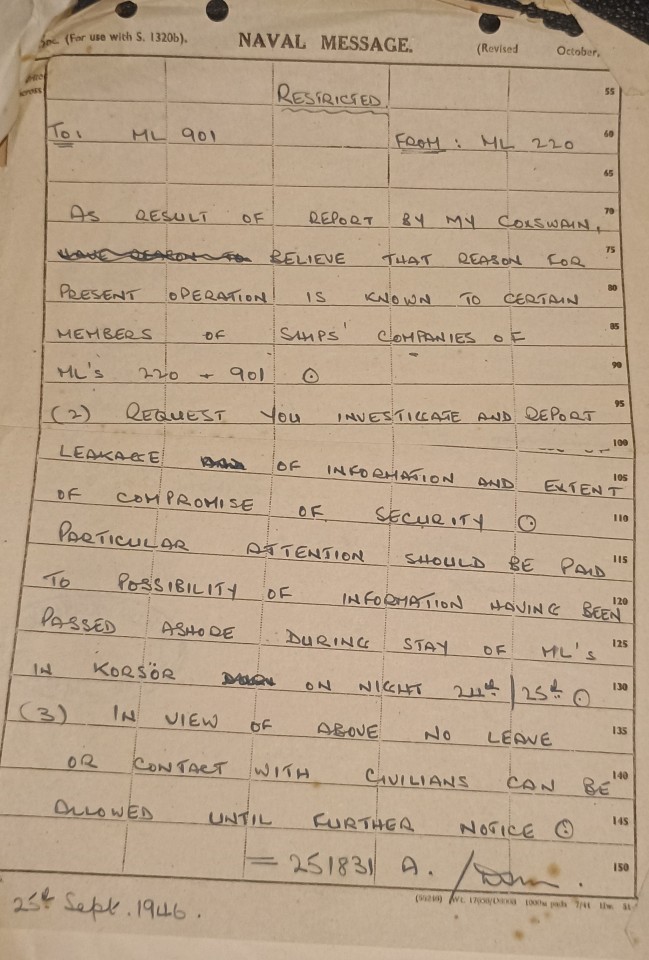 (For use with S. 1320b). NAVAL MESSAGE. (Revised October,
RESTRICTED 55
To: ML 901 FROM: ML 220 60
65
AS RESULT OF REPORT BY MY COXSWAIN, 70
HAVE REASON TO BELIEVE THAT REASON FOR 75
PRESENT OPERATION IS KNOWN TO CERTAIN 80
MEMBERS OF SHIPS' COMPANIES OF 85
ML'S 220 + 901 ⊙ 90
(2) REQUEST YOU INVESTIGATE AND REPORT 95
100
LEAKAGE OF INFORMATION AND EXTENT 105
OF COMPROMISE OF SECURITY ⊙ 110
PARTICULAR ATTENTION SHOULD BE PAID 115
TO POSSIBILITY OF INFORMATION HAVING BEEN 120
PASSED ASHORE DURING STAY OF ML'S 125
IN KORSÖR ON NIGHT 24th/25th ⊙ 130
(3) IN VIEW OF ABOVE NO LEAVE 135
OR CONTACT WITH CIVILIANS CAN BE 140
ALLOWED UNTIL FURTHER NOTICE ⊙ 145
= 251831 A. 150
25th Sept. 1946.